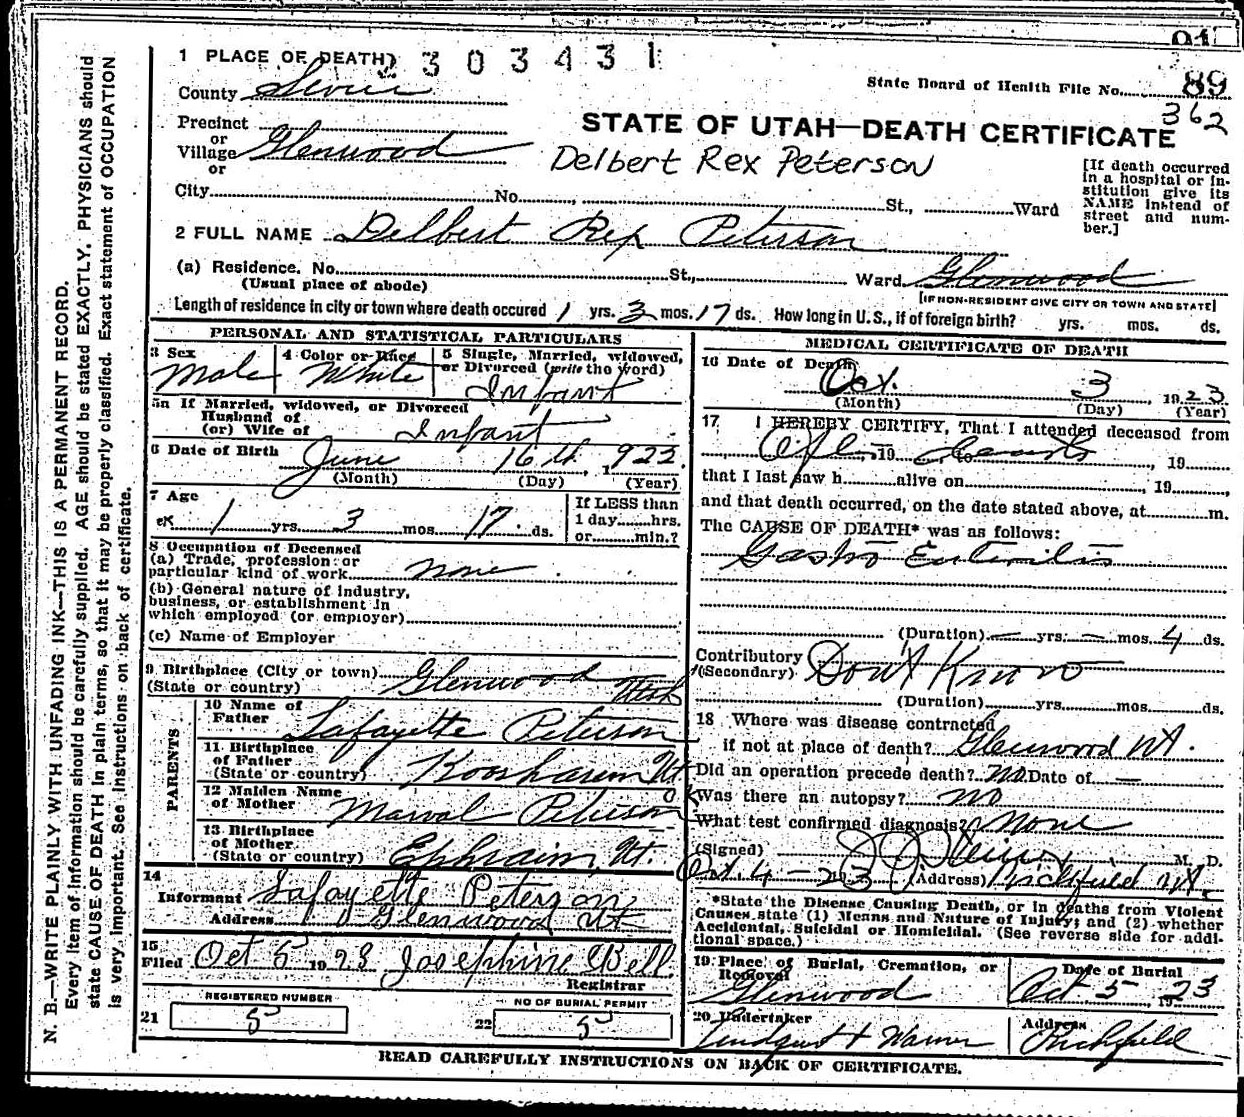 1 PLACE OF DEATH
2303431
91
State Board of Health File No. 89
362
County Sevier
Precinct
or
Village Glenwood
or
City No. St., Ward
STATE OF UTAH—DEATH CERTIFICATE
Delbert Rex Peterson
[If death occurred in a hospital or institution give its NAME instead of street and number.]
2 FULL NAME Delbert Rex Peterson
(a) Residence. No. St., Ward Glenwood
(Usual place of abode)
[IF NON-RESIDENT GIVE CITY OR TOWN AND STATE]
Length of residence in city or town where death occured 1 yrs. 3 mos. 17 ds. How long in U.S., if of foreign birth? yrs. mos. ds.
PERSONAL AND STATISTICAL PARTICULARS
3 Sex
Male
4 Color or Race
White
5 Single, Married, widowed, or Divorced (write the word)
Infant
5a If Married, widowed, or Divorced
Husband of
(or) Wife of Infant
6 Date of Birth June 16th, 1922.
(Month) (Day) (Year)
7 Age
1 yrs. 3 mos. 17 ds.
If LESS than
1 day hrs.
or min.?
8 Occupation of Deceased
(a) Trade, profession or
particular kind of work none
(b) General nature of industry,
business, or establishment in
which employed (or employer)
(c) Name of Employer
9 Birthplace (City or town) Glenwood
(State or country) Utah
PARENTS
10 Name of
Father Lafayette Peterson
11 Birthplace
of Father
(State or country) Koosharem Ut
12 Maiden Name
of Mother Marval Peterson
OK
13 Birthplace
of Mother
(State or country) Ephraim, Ut.
14
Informant Lafayette Peterson
Address Glenwood Ut
15
Filed Oct 5 1923 Josephine Bell
Registrar
REGISTERED NUMBER
21 5
NO OF BURIAL PERMIT
22 5
MEDICAL CERTIFICATE OF DEATH
16 Date of Death
Oct. 3, 1923
(Month) (Day) (Year)
17 I HEREBY CERTIFY, That I attended deceased from
after, 19 death, 19
that I last saw h alive on , 19
and that death occurred, on the date stated above, at m.
The CAUSE OF DEATH* was as follows:
Gastro Enteritis
(Duration) — yrs. — mos. 4 ds.
Contributory Don't Know
(Secondary)
(Duration) yrs. mos. ds.
18 Where was disease contracted
if not at place of death? Glenwood Ut.
Did an operation precede death? No Date of —
Was there an autopsy? no
What test confirmed diagnosis? None
(Signed) M. D.
Oct. 4 - 23 19 (Address) Richfield Ut.
*State the Disease Causing Death, or in deaths from Violent Causes state (1) Means and Nature of Injury; and (2) whether Accidental, Suicidal or Homicidal. (See reverse side for additional space.)
19 Place of Burial, Cremation, or Removal
Glenwood
Date of Burial
Oct 5 1923
20 Undertaker
Lindquist + Warner
Address
Richfield
READ CAREFULLY INSTRUCTIONS ON BACK OF CERTIFICATE.
N. B.—WRITE PLAINLY WITH UNFADING INK—THIS IS A PERMANENT RECORD.
Every item of information should be carefully supplied. AGE should be stated EXACTLY. PHYSICIANS should
state CAUSE OF DEATH in plain terms, so that it may be properly classified. Exact statement of OCCUPATION
is very important. See instructions on back of certificate.